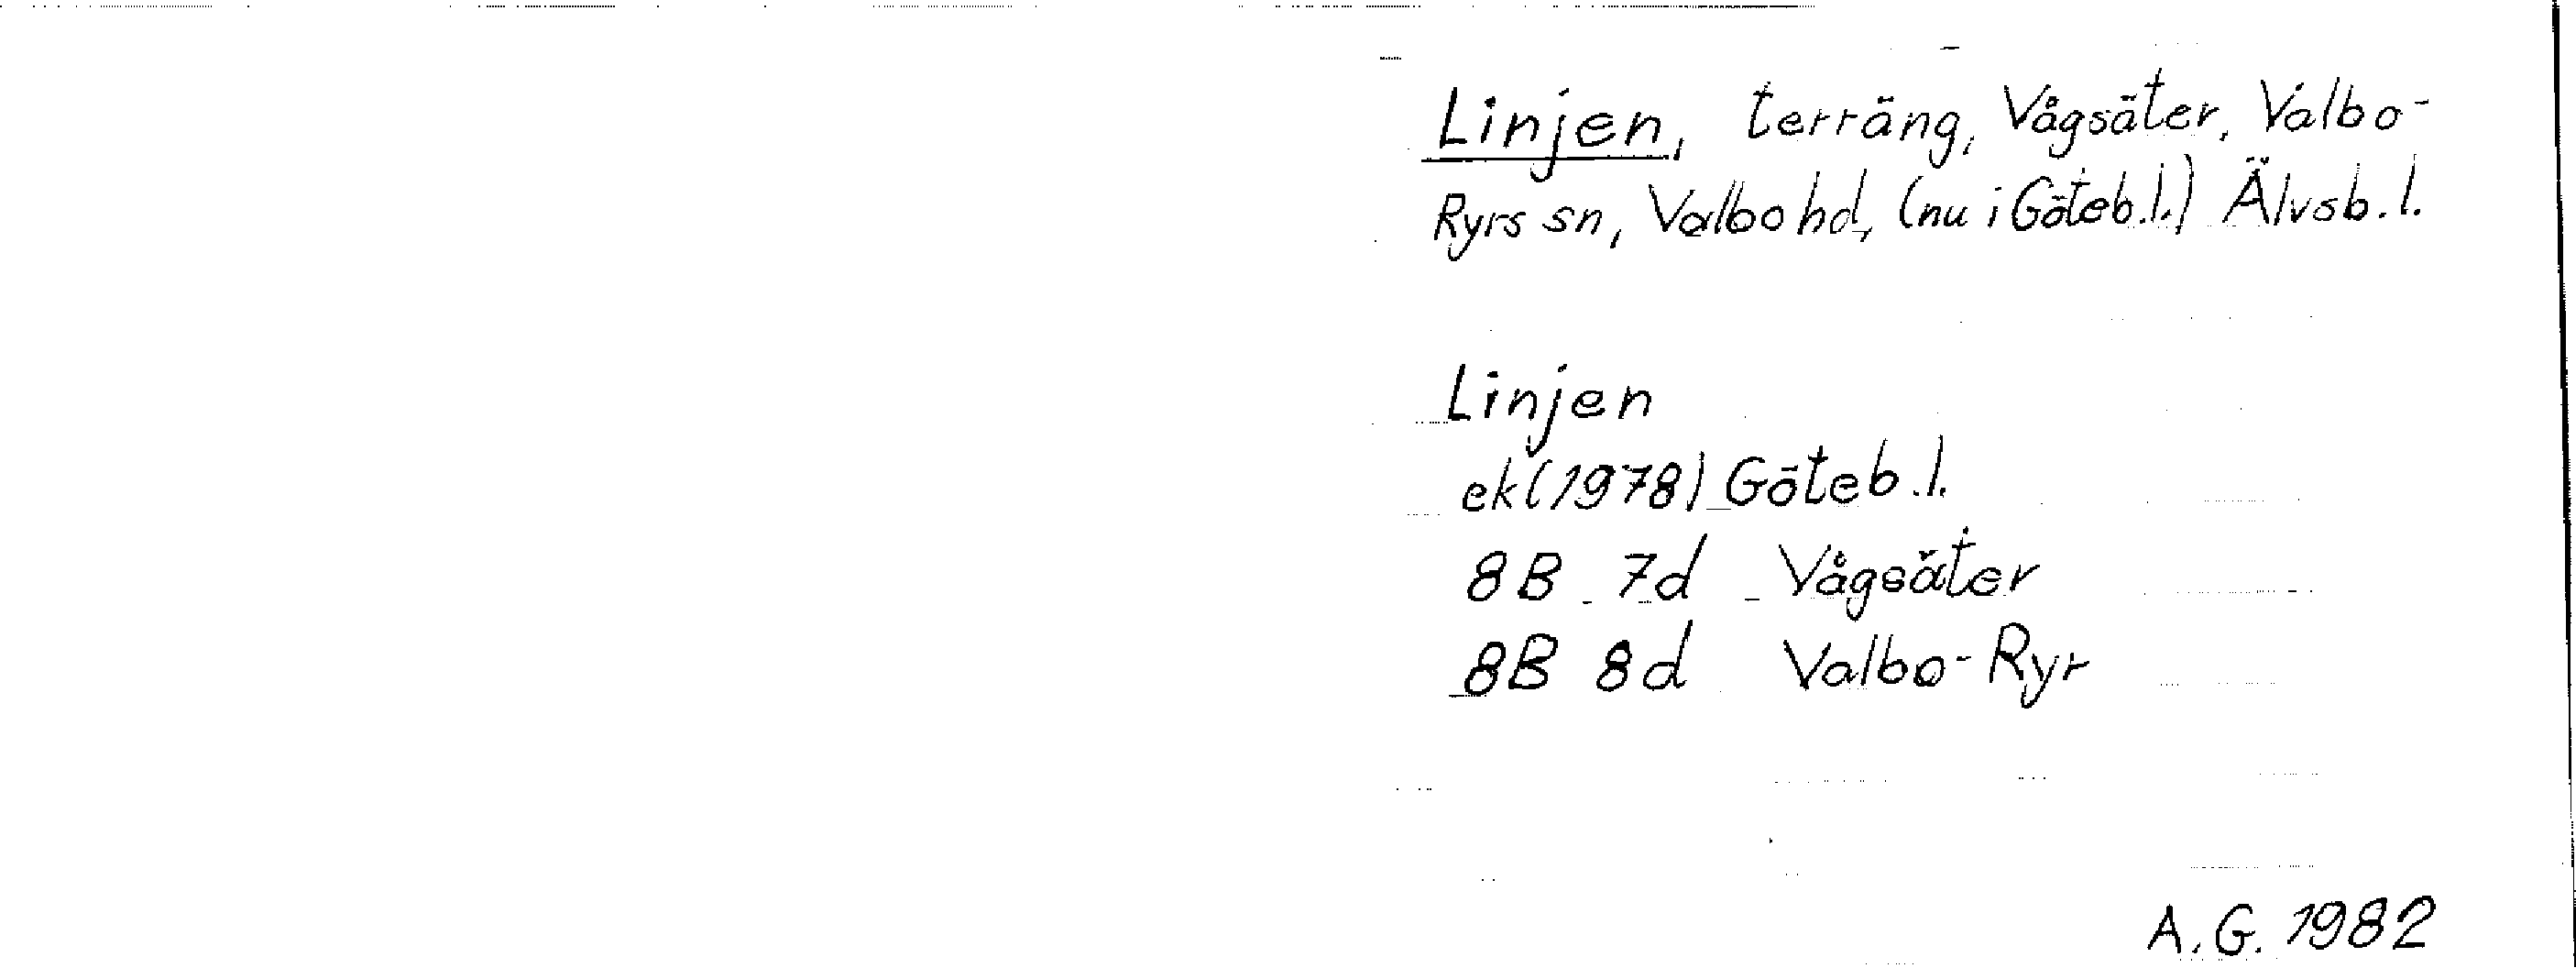 Linjen, terräng, Vågsäter, Valbo-
Ryrs sn, Valbo hd, (nu i Göteb.l.) Älvsb.l.
Linjen
ek(1978) Göteb.l.
8B 7d Vågsäter
8B 8d Valbo-Ryr
A.G. 1982